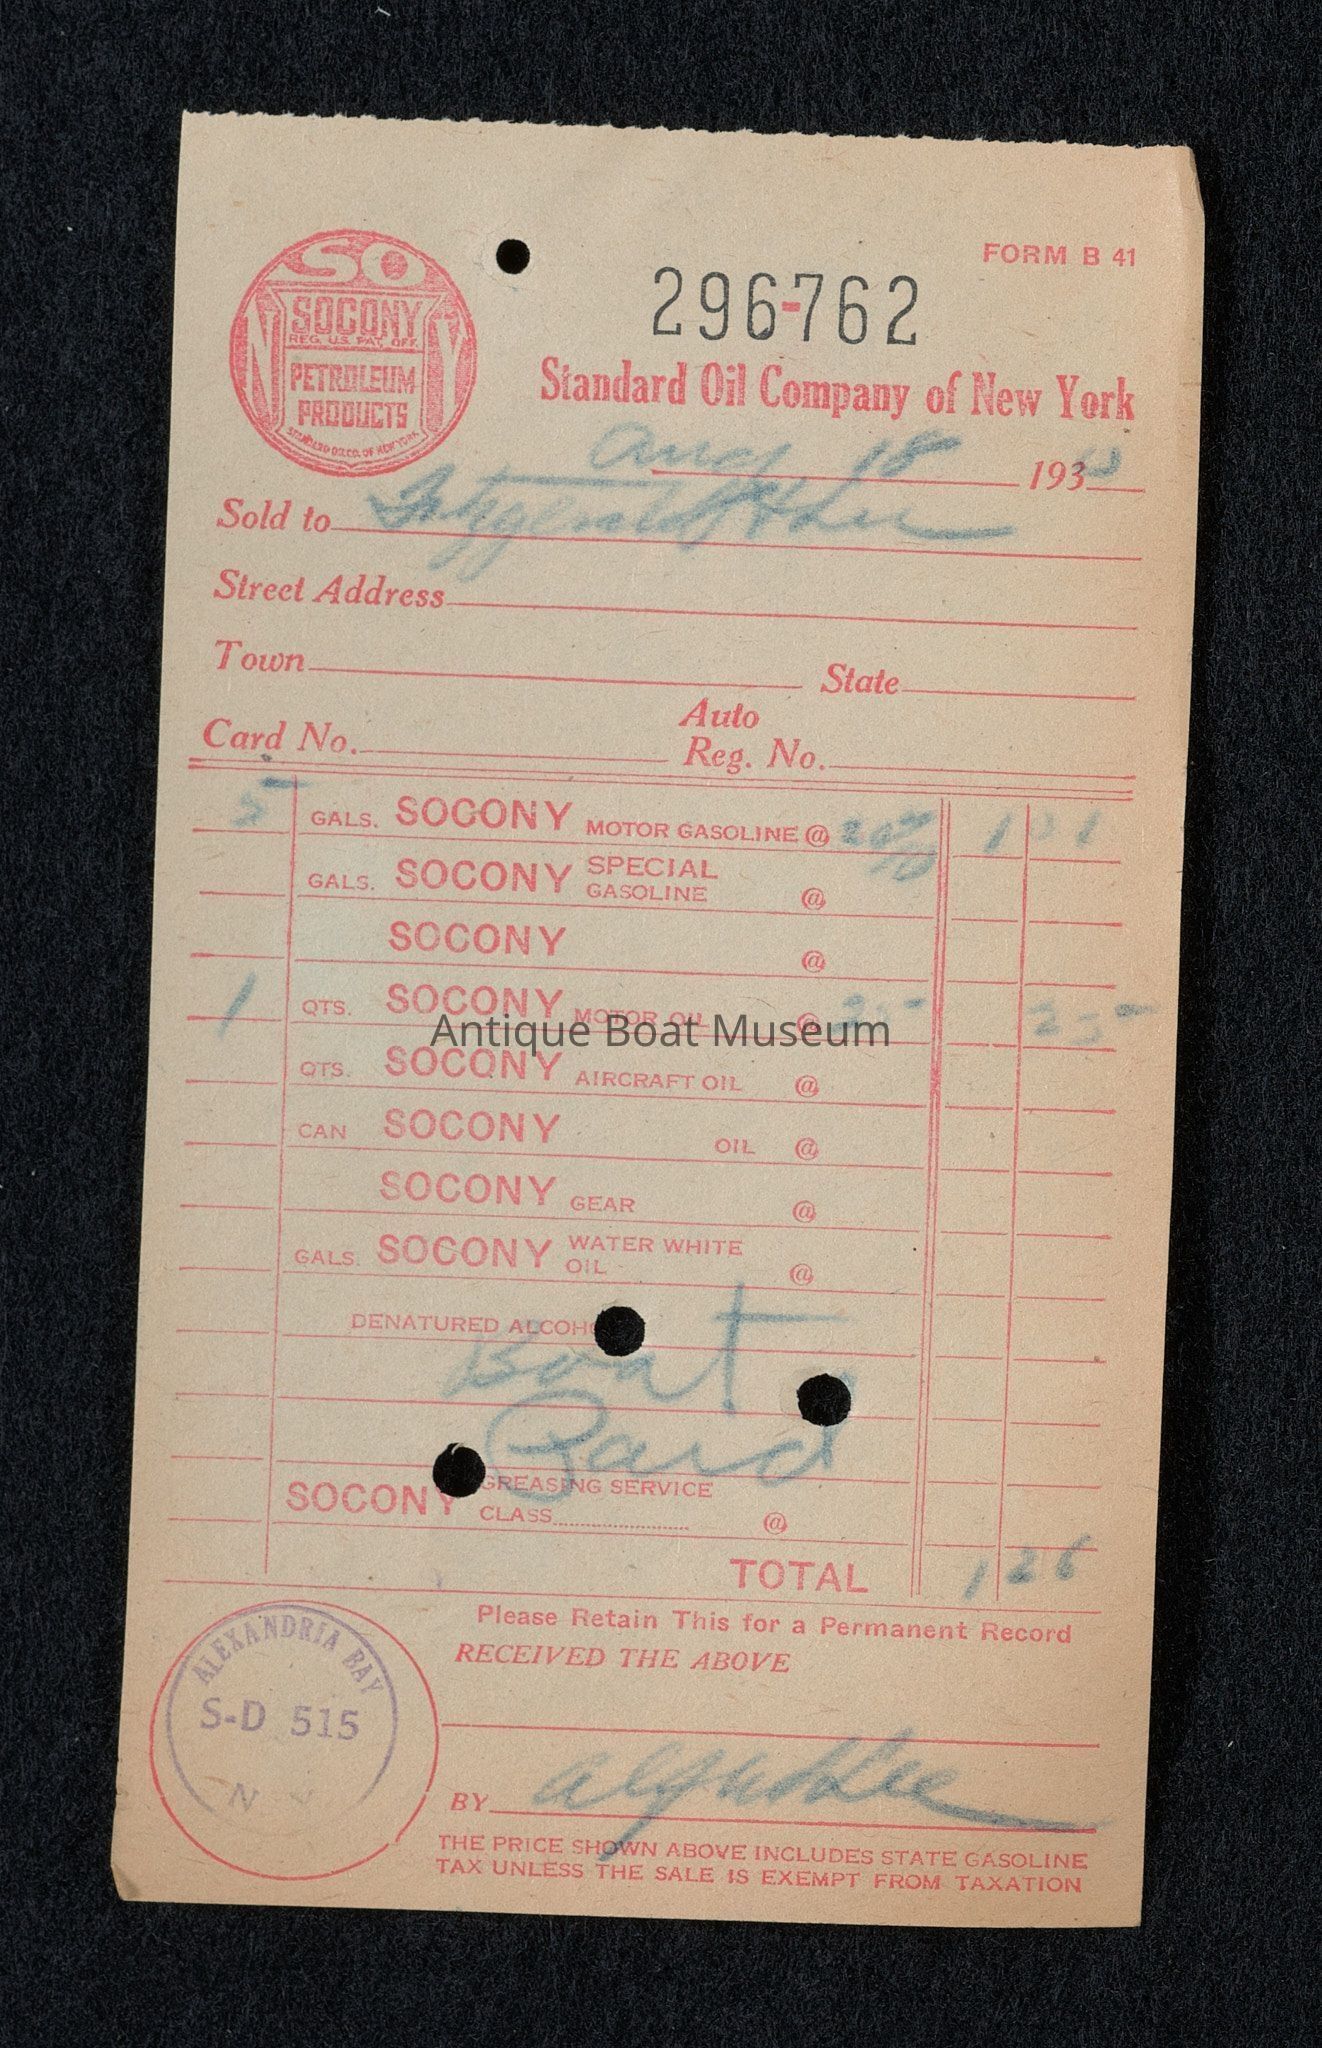 FORM B 41
296-762
SO
SOCONY
REG. U.S. PAT. OFF.
PETROLEUM
PRODUCTS
STANDARD OIL CO. OF NEW YORK
N Y
Standard Oil Company of New York
Aug 18 193
Sold to Fitzgerald & Lee
Street Address
Town State
Card No. Auto Reg. No.
5 GALS. SOCONY MOTOR GASOLINE @ 1 01
GALS. SOCONY SPECIAL GASOLINE @
SOCONY @
1 QTS. SOCONY MOTOR OIL @ 25 25
Antique Boat Museum
QTS. SOCONY AIRCRAFT OIL @
CAN SOCONY OIL @
SOCONY GEAR @
GALS. SOCONY WATER WHITE OIL @
DENATURED ALCOHO
Boat
Paid
SOCONY GREASING SERVICE
CLASS @
TOTAL 1 26
Please Retain This for a Permanent Record
RECEIVED THE ABOVE
ALEXANDRIA BAY
S-D 515
N Y
BY
THE PRICE SHOWN ABOVE INCLUDES STATE GASOLINE
TAX UNLESS THE SALE IS EXEMPT FROM TAXATION